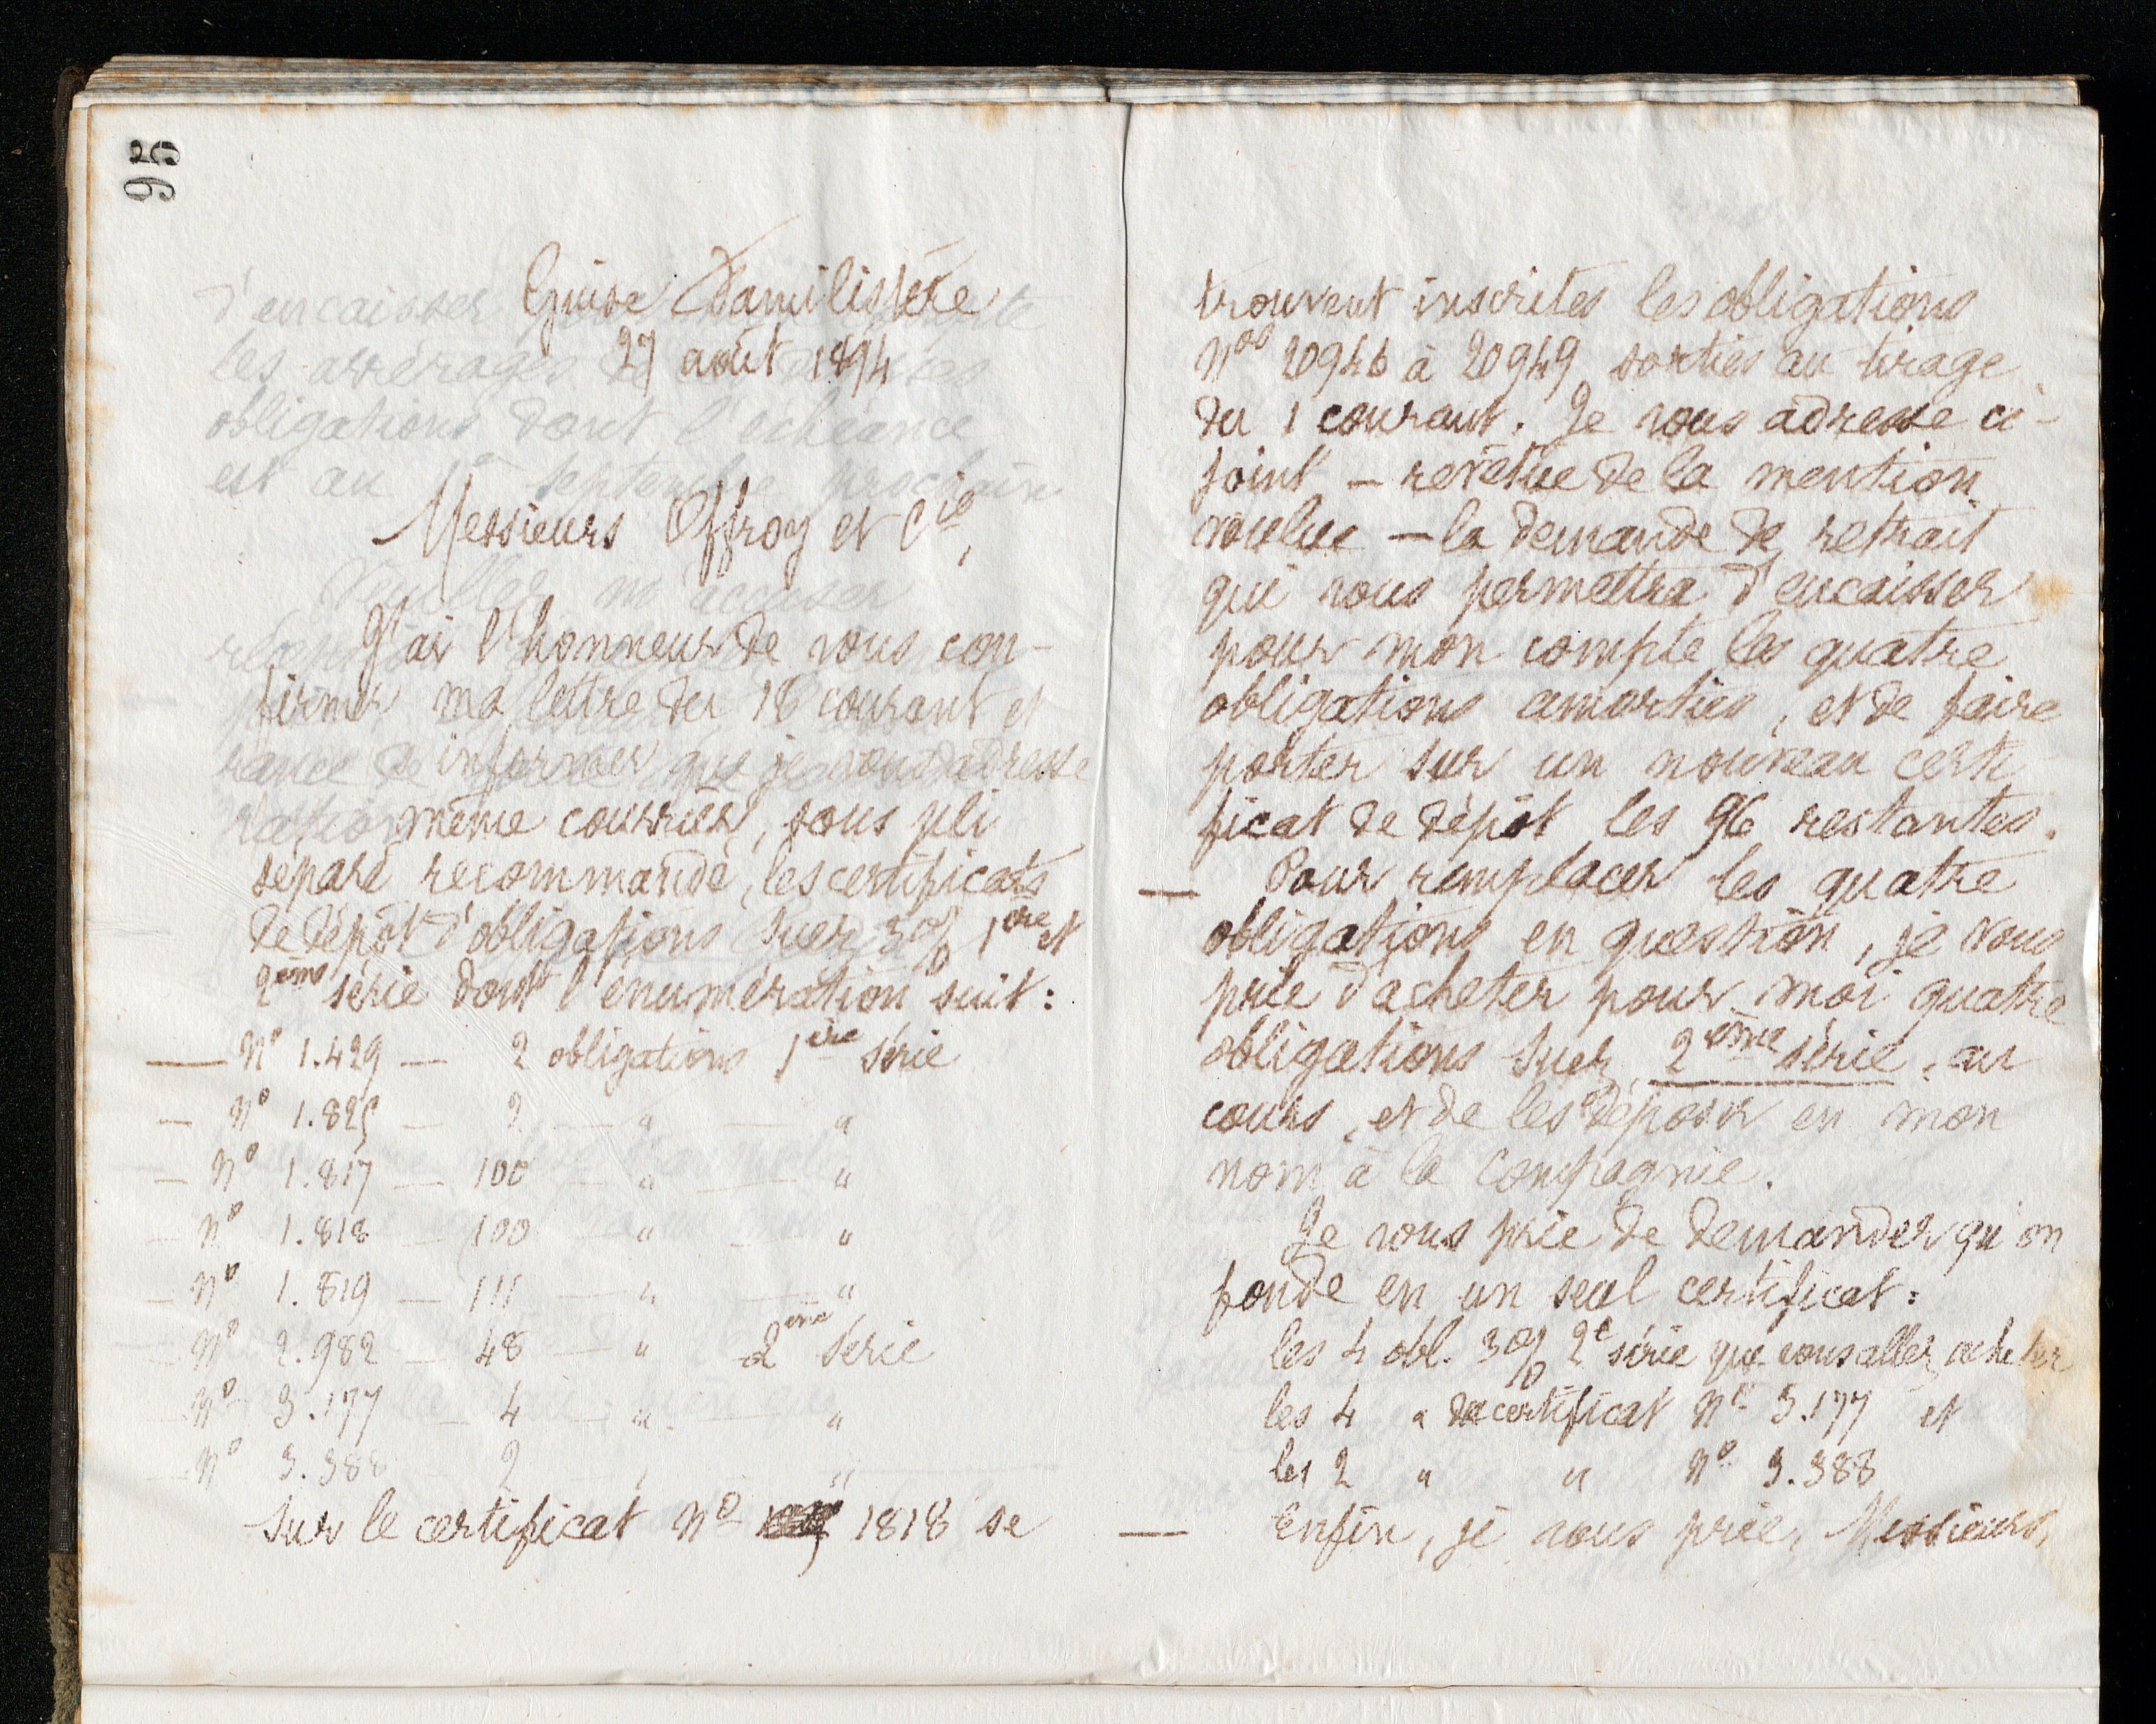 95
Guise Familistère
27 août 1894
Messieurs Offroy et Cie,
J'ai l'honneur de vous con-
firmer ma lettre du 18 courant et
de informer que je vous adresse
même courrier, sous pli
séparé recommandé, les certificats
de dépôt d'obligations Suez 3% 1ère et
2ème série dont l'énumération suit :
— No 1.429 — 2 obligations 1ère série
— No 1.825 — 2 — " — "
— No 1.817 — 100 — " — "
— No 1.818 — 100 — " — "
— No 1.819 — 111 — " — "
— No 2.982 — 48 — " 2ème série
— No 3.177 — 4 — " — "
— No 3.388 2 " "
Sur le certificat No 1818 se
trouvent inscrites les obligations
Nos 20946 à 20949 sorties au tirage
du 1 courant. Je vous adresse ci-
joint — revêtue de la mention
voulue — la demande de retrait
qui vous permettra d'encaisser
pour mon compte les quatre
obligations amorties, et de faire
porter sur un nouveau certi
ficat de dépôt les 96 restantes.
— Pour remplacer les quatre
obligations en question, je vous
prie d'acheter pour moi quatre
obligations Suez, 2ème série, au
cours, et de les déposer en mon
nom à la Compagnie.
Je vous prie de demander qu'on
fonde en un seul certificat :
les 4 obl. 3% 2e série que vous allez acheter
les 4 " du certificat No 3.177 et
les 2 " " No 3.388
— Enfin, je vous prie, Messieurs,
d'encaisser
les arrérages de
obligations dont l'échéance
est au septembre prochain
Veuillez m'accuser